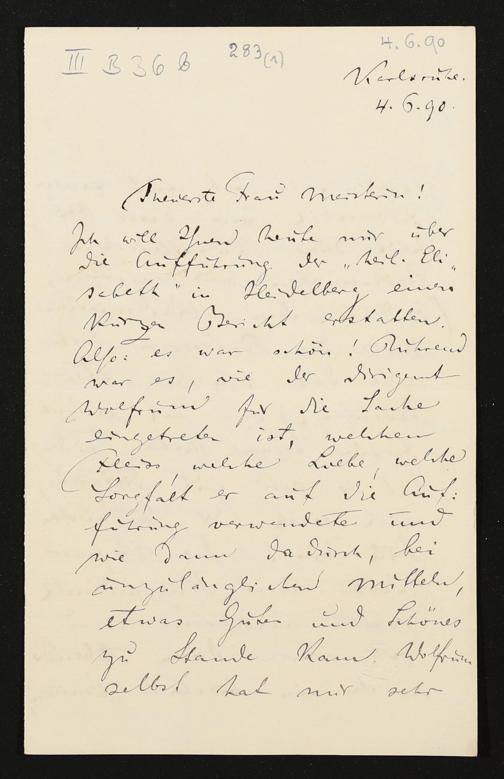 III B 36 b 283(1) 4.6.90
Karlsruhe.
4.6.90.
Theuerste Frau Meisterin!
Ich will Ihnen heute nur über
die Aufführung der „heil. Eli-
sabeth" in Heidelberg einen
kurzen Bericht erstatten.
Also: es war schön! Rührend
war es, wie der Dirigent
Wolfrum für die Sache
eingetreten ist, welchen
Fleiss, welche Liebe, welche
Sorgfalt er auf die Auf:
führung verwendete und
wie dann dadurch, bei
unzulänglichen Mitteln,
etwas Gutes und Schönes
zu Stande kam. Wolfrum
selbst hat mir sehr